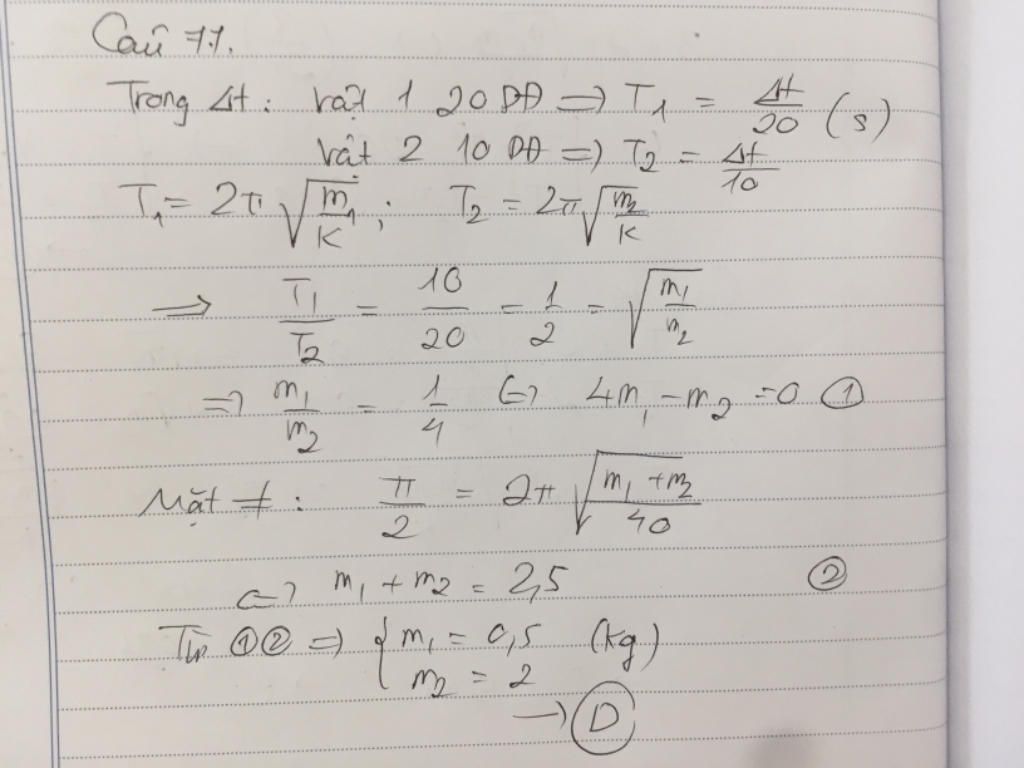 Câu 77.
Trong Δt : vật 1 20 DĐ => T₁ = Δt/20 (s)
vật 2 10 DĐ => T₂ = Δt/10
T₁ = 2π √(m₁/K) ; T₂ = 2π √(m₂/K)
=> T₁/T₂ = 10/20 = 1/2 = √(m₁/m₂)
=> m₁/m₂ = 1/4 <=> 4m₁ - m₂ = 0 ①
Mặt ≠ : π/2 = 2π √((m₁ + m₂)/40)
<=> m₁ + m₂ = 2,5 ②
Từ ①② => { m₁ = 0,5 (kg)
m₂ = 2
→ D